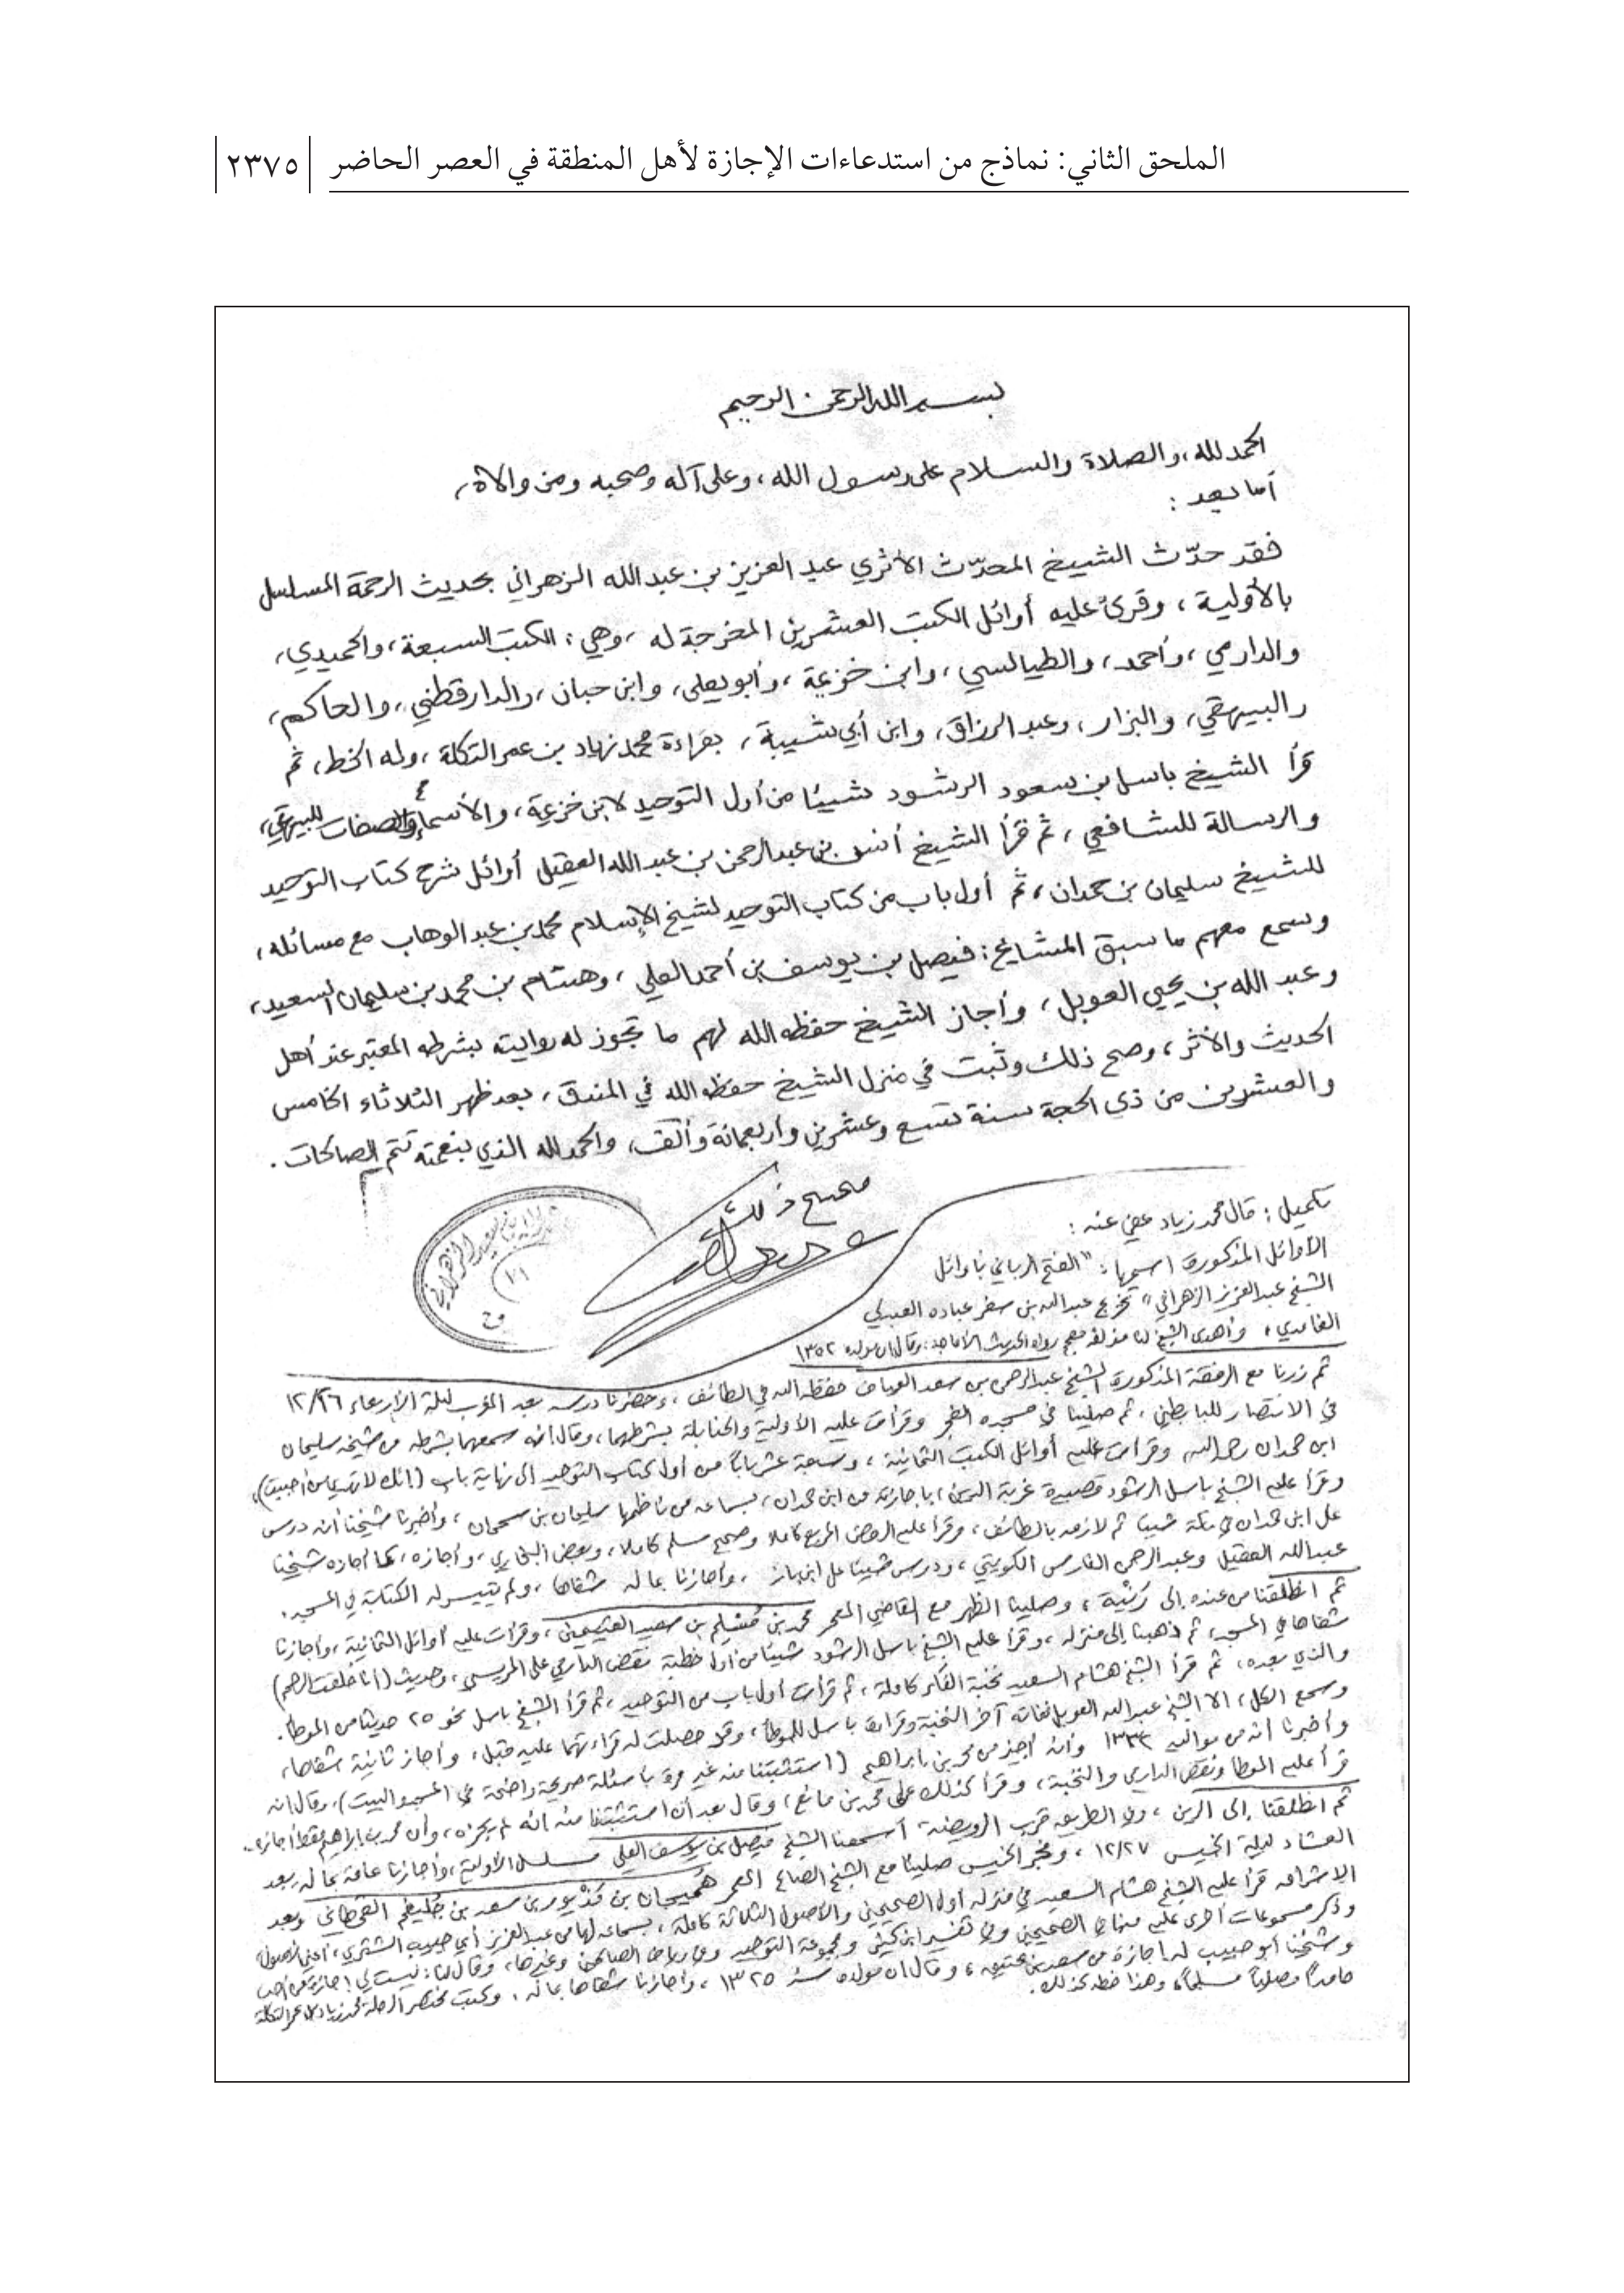 الملحق الثاني: نماذج من استدعاءات الإجازة لأهل المنطقة في العصر الحاضر
٢٣٧٥
بسم الله الرحمن الرحيم
الحمد لله، والصلاة والسلام على رسول الله، وعلى آله وصحبه ومن والاه،
أما بعد:
فقد حدّث الشيخ المحدّث الأثري عبد العزيز بن عبد الله الزهراني بحديث الرحمة المسلسل
بالأولية، وقرئ عليه أوائل الكتب العشرين المخرجة له، وهي: الكتب السبعة، والحميدي،
والدارمي، وأحمد، والطيالسي، وابن خزيمة، وأبو يعلى، وابن حبان، والدارقطني، والحاكم،
والبيهقي، والبزار، وعبد الرزاق، وابن أبي شيبة، بقراءة محمد زياد بن عمر التكلة، وله الخط، ثم
قرأ الشيخ باسل بن سعود الرشود شيئا من أول التوحيد لابن خزيمة، والأسماء والصفات للبيهقي،
والرسالة للشافعي، ثم قرأ الشيخ أنس بن عبد الرحمن بن عبد الله العقيل أوائل شرح كتاب التوحيد
للشيخ سليمان بن حمدان، ثم أول باب من كتاب التوحيد لشيخ الإسلام محمد بن عبد الوهاب مع مسائله،
وسمع معهم ما سبق المشايخ: فيصل بن يوسف بن أحمد العلي، وهشام بن محمد بن سليمان السعيد،
وعبد الله بن يحيى العوبل، وأجاز الشيخ حفظه الله لهم ما تجوز له روايته بشرطه المعتبر عند أهل
الحديث والأثر، وصح ذلك وثبت في منزل الشيخ حفظه الله في المندق، بعد ظهر الثلاثاء الخامس
والعشرين من ذي الحجة سنة تسع وعشرين وأربعمائة وألف، والحمد لله الذي بنعمته تتم الصالحات.
صحيح ذلك
تكميل: قال محمد زياد عفي عنه:
الأوائل المذكورة اسمها: "الفتح الرباني بأوائل
الشيخ عبد العزيز الزهراني" تخريج عبد الله بن سفر عباده العبدلي
الغامدي، وأهدى الشيخ لنا مؤلفه معجم رواة الحديث الأماجد، وقال إن مولده ١٣٥٢
ثم زرنا مع الرفقة المذكورة الشيخ عبد الرحمن بن سعد العياف حفظه الله في الطائف، وحضرنا درسه بعد المغرب ليلة الأربعاء ١٢/٢٦
في الانتصار للبابطين، ثم صلينا في مسجده الفجر وقرأت عليه الأولية والحنابلة بشرطهما، وقال إنه سمعهما بشرطه من شيخه سليمان
ابن حمدان رحمه الله، وقرأت عليه أوائل الكتب الثمانية، وسبعة عشر بابا من أول كتاب التوحيد إلى نهاية باب (إنك لا تهدي من أحببت)،
وقرأ عليه الشيخ باسل الرشود قصيدة غربة الدين، بإجازته من ابن حمدان، بسماعه من ناظمها سليمان بن سحمان، وأخبرنا شيخنا أنه درس
على ابن حمدان في مكة شيئا ثم لازمه بالطائف، وقرأ عليه الروض المربع كاملا وصحيح مسلم كاملا، وبعض البخاري، وأجازه، كما أجازه شيخنا
عبد الله العقيل وعبد الرحمن الفارس الكويتي، ودرس شيئا على ابن باز، وأجازنا بما له شفاها، ولم يتيسر له الكتابة في المسجد.
ثم انطلقنا من عنده إلى رَنْية، وصلينا الظهر مع القاضي المعمر محمد بن مُسَلَّم بن سعيد العثيمين، وقرأت عليه أوائل الثمانية، وأجازنا
شفاها في المسجد، ثم ذهبنا إلى منزله، وقرأ عليه الشيخ باسل الرشود شيئا من أول خطبة نقض الدارمي على المريسي، وحديث (أنا خلقت الرحم)
والذي بعده، ثم قرأ الشيخ هشام السعيد نخبة الفكر كاملة، ثم قرأت أول باب من التوحيد، ثم قرأ الشيخ باسل نحو ٢٥ حديثا من الموطأ.
وسمع الكل، إلا الشيخ عبد الله العوبل ففاته آخر النخبة وقراءة باسل للموطأ، وقد حصلت له قراءتهما عليه قبل، وأجاز ثانية شفاها،
وأخبرنا أنه من مواليد ١٣٣٤ وأنه أجيز من محمد بن إبراهيم (استثبتنا منه غير مرة بأسئلة صريحة واضحة في المسجد والبيت)، وقال إنه
قرأ عليه الموطأ ونقض الدارمي والنخبة، وقرأ كذلك على محمد بن مانع، وقال بعد أن استثبتنا منه إنه لم يجزه، وأن محمد بن إبراهيم فقط أجازه.
ثم انطلقنا إلى الرين، وفي الطريق قرب الرويضة أسمعنا الشيخ فيصل بن يوسف العلي مسلسل الأولية، وأجازنا عامة بما له بعد
العشاء ليلة الخميس ١٢/٢٧، وفجر الخميس صلينا مع الشيخ الصالح المعمر هميجان بن سعد بن القحطاني وبعد
الإشراق قرأ عليه الشيخ هشام السعيد في منزله أول الصحيحين والأصول الثلاثة كاملة، بسماعه لها من عبد العزيز أبي حبيب الشثري، أعني الأصول
وذكر مسموعات أخرى عليه منها في الصحيحين وفي تفسير ابن كثير ومجموعة التوحيد وفي رياض الصالحين وغيرها، وقال لنا: ليست لي إجازة من أحد
وشيخنا أبو حبيب له إجازة من سعد بن عتيق، وقال إن مولده سنة ١٣٢٥، وأجازنا شفاها بما له. وكتب مختصر الرحلة محمد زياد بن عمر التكلة
حامدا مصليا مسلما، وهذا خطه كذلك.